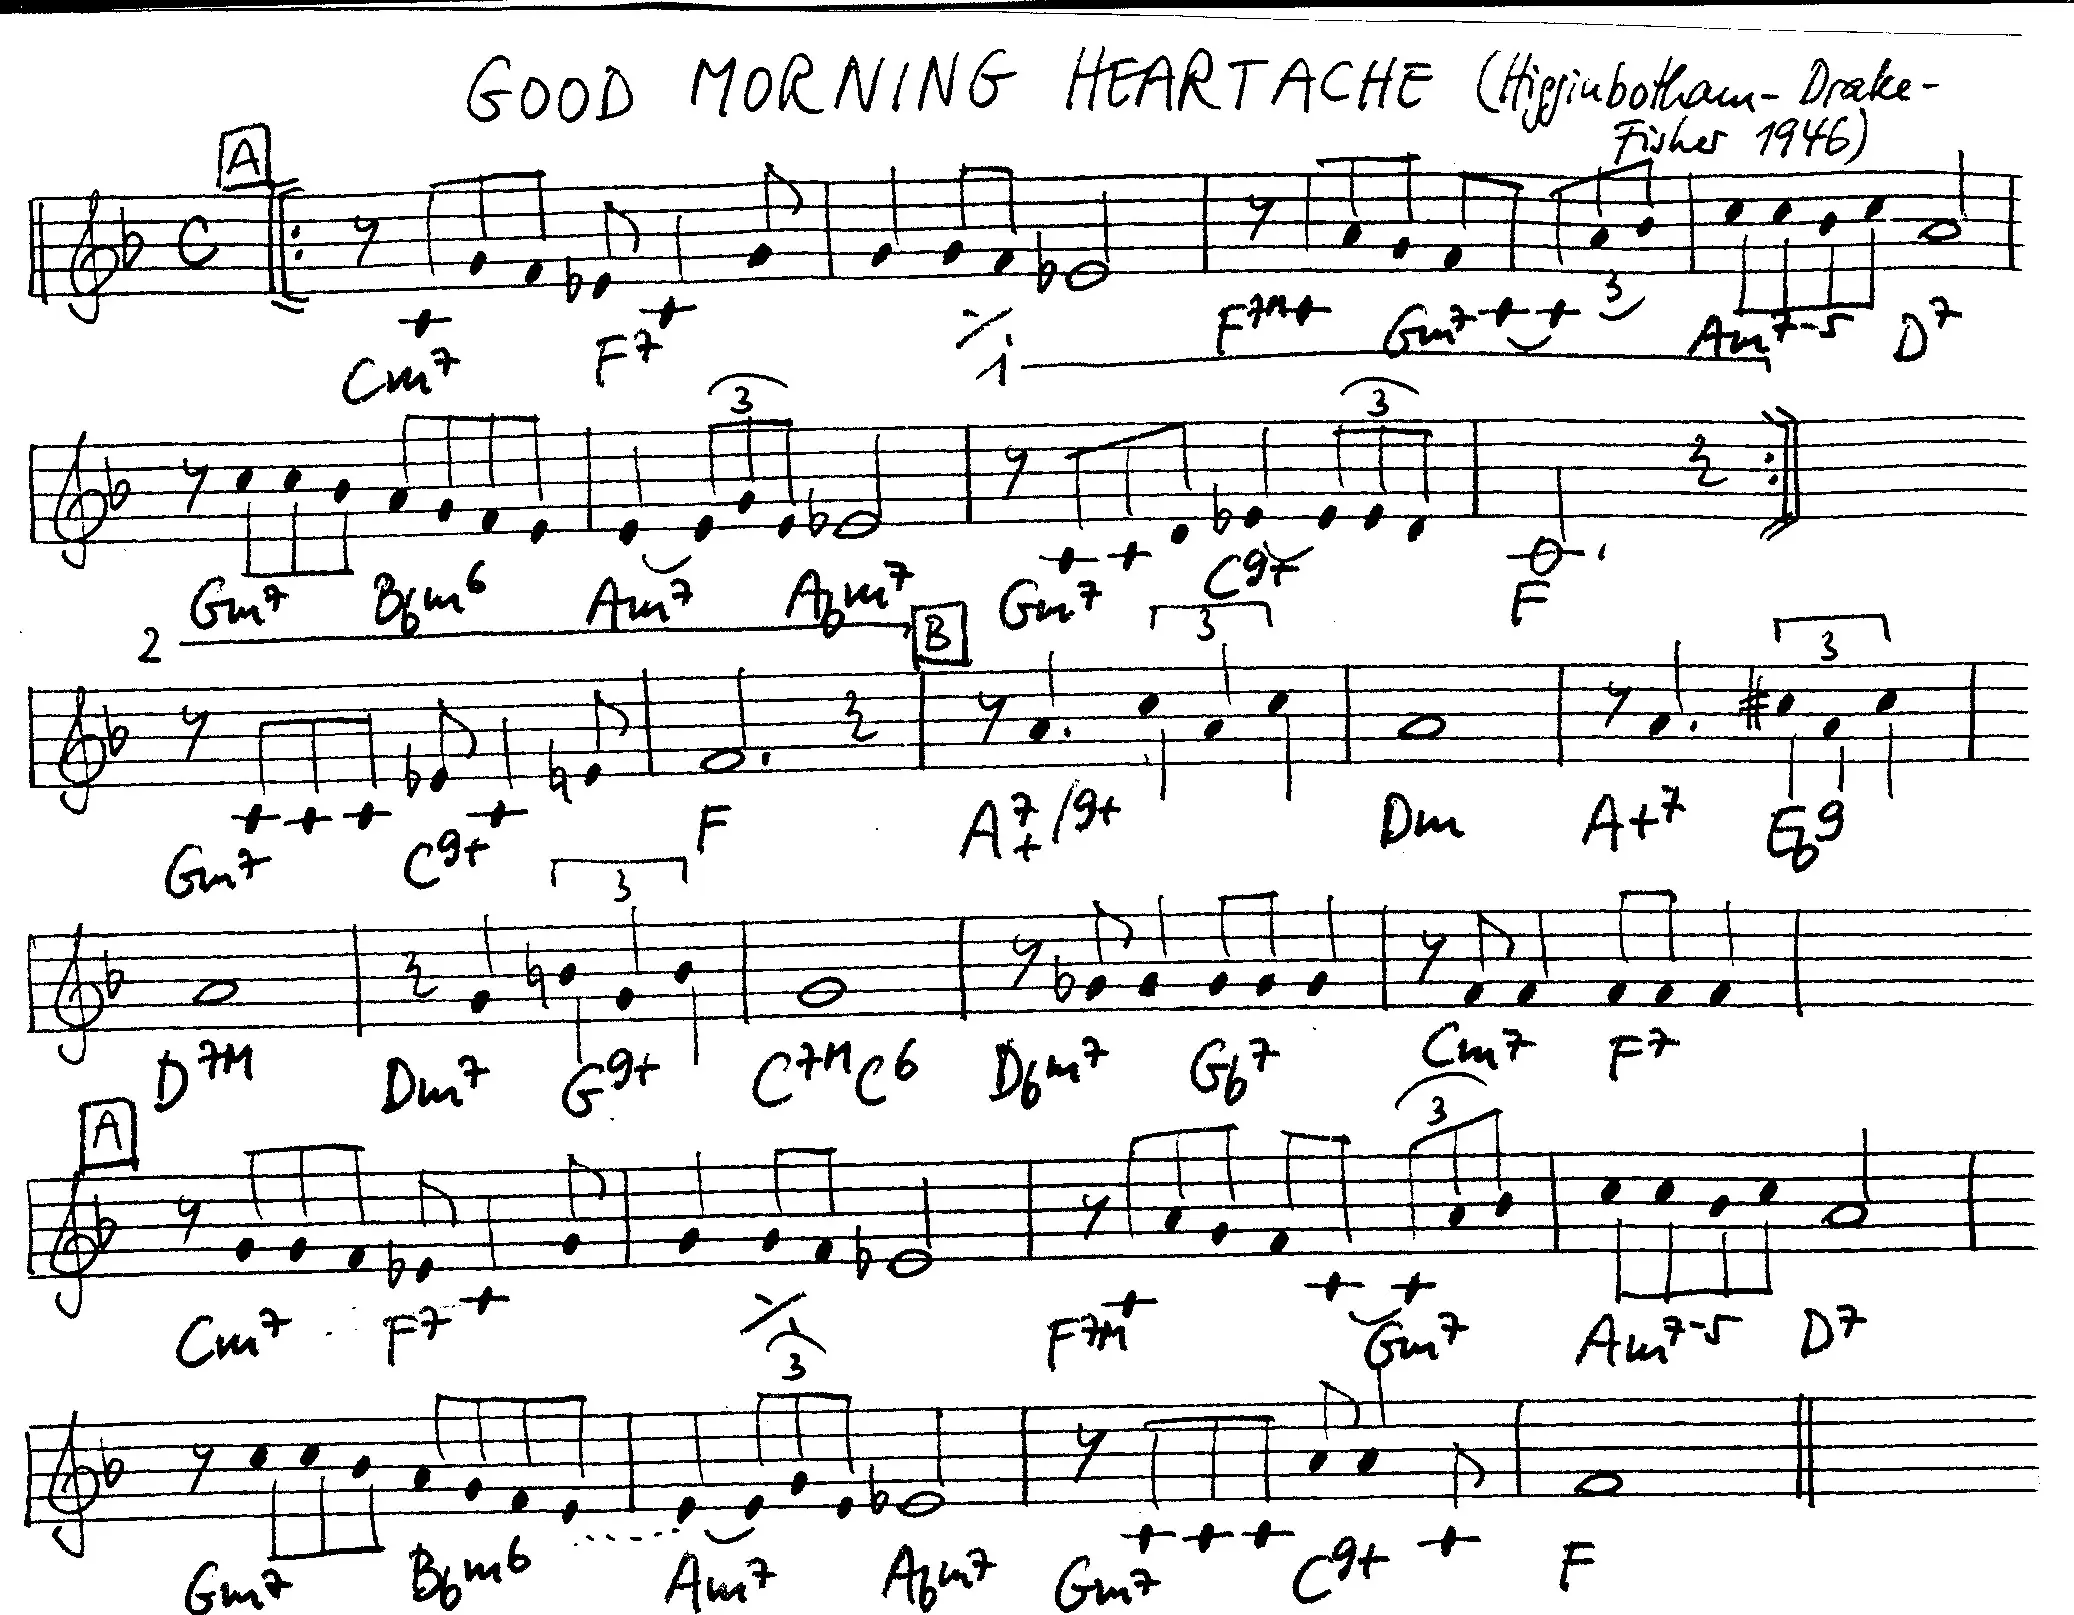 GOOD MORNING HEARTACHE (Higginbotham-Drake-
Fisher 1946)
A
3
Cm7 F7 ./. F7M Gm7 Am7-5 D7
1
3 3
Gm7 Bbm6 Am7 Abm7 Gm7 C9+ F
2 B 3 3
Gm7 C9+ F A7+/9+ Dm A+7 Eb9
3
D7M Dm7 G9+ C7M C6 Dbm7 Gb7 Cm7 F7
A 3
Cm7 F7 ./. F7M Gm7 Am7-5 D7
3
Gm7 Bbm6 Am7 Abm7 Gm7 C9+ F